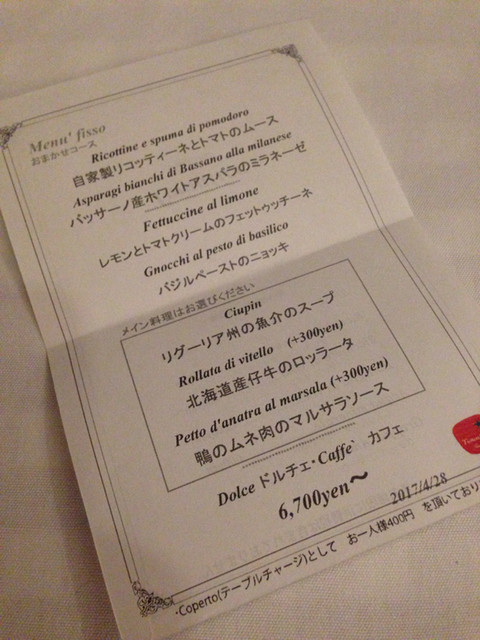 Menu' fisso
おまかせコース
Ricottine e spuma di pomodoro
自家製リコッティーネとトマトのムース
Asparagi bianchi di Bassano alla milanese
バッサーノ産ホワイトアスパラのミラネーゼ
Fettuccine al limone
レモンとトマトクリームのフェットゥッチーネ
Gnocchi al pesto di basilico
バジルペーストのニョッキ
メイン料理はお選びください
Ciupin
リグーリア州の魚介のスープ
Rollata di vitello (+300yen)
北海道産仔牛のロッラータ
Petto d'anatra al marsala (+300yen)
鴨のムネ肉のマルサラソース
Dolce ドルチェ・Caffe` カフェ
6,700yen～
2017/4/28
・Coperto(テーブルチャージ)として お一人様400円 を頂いており